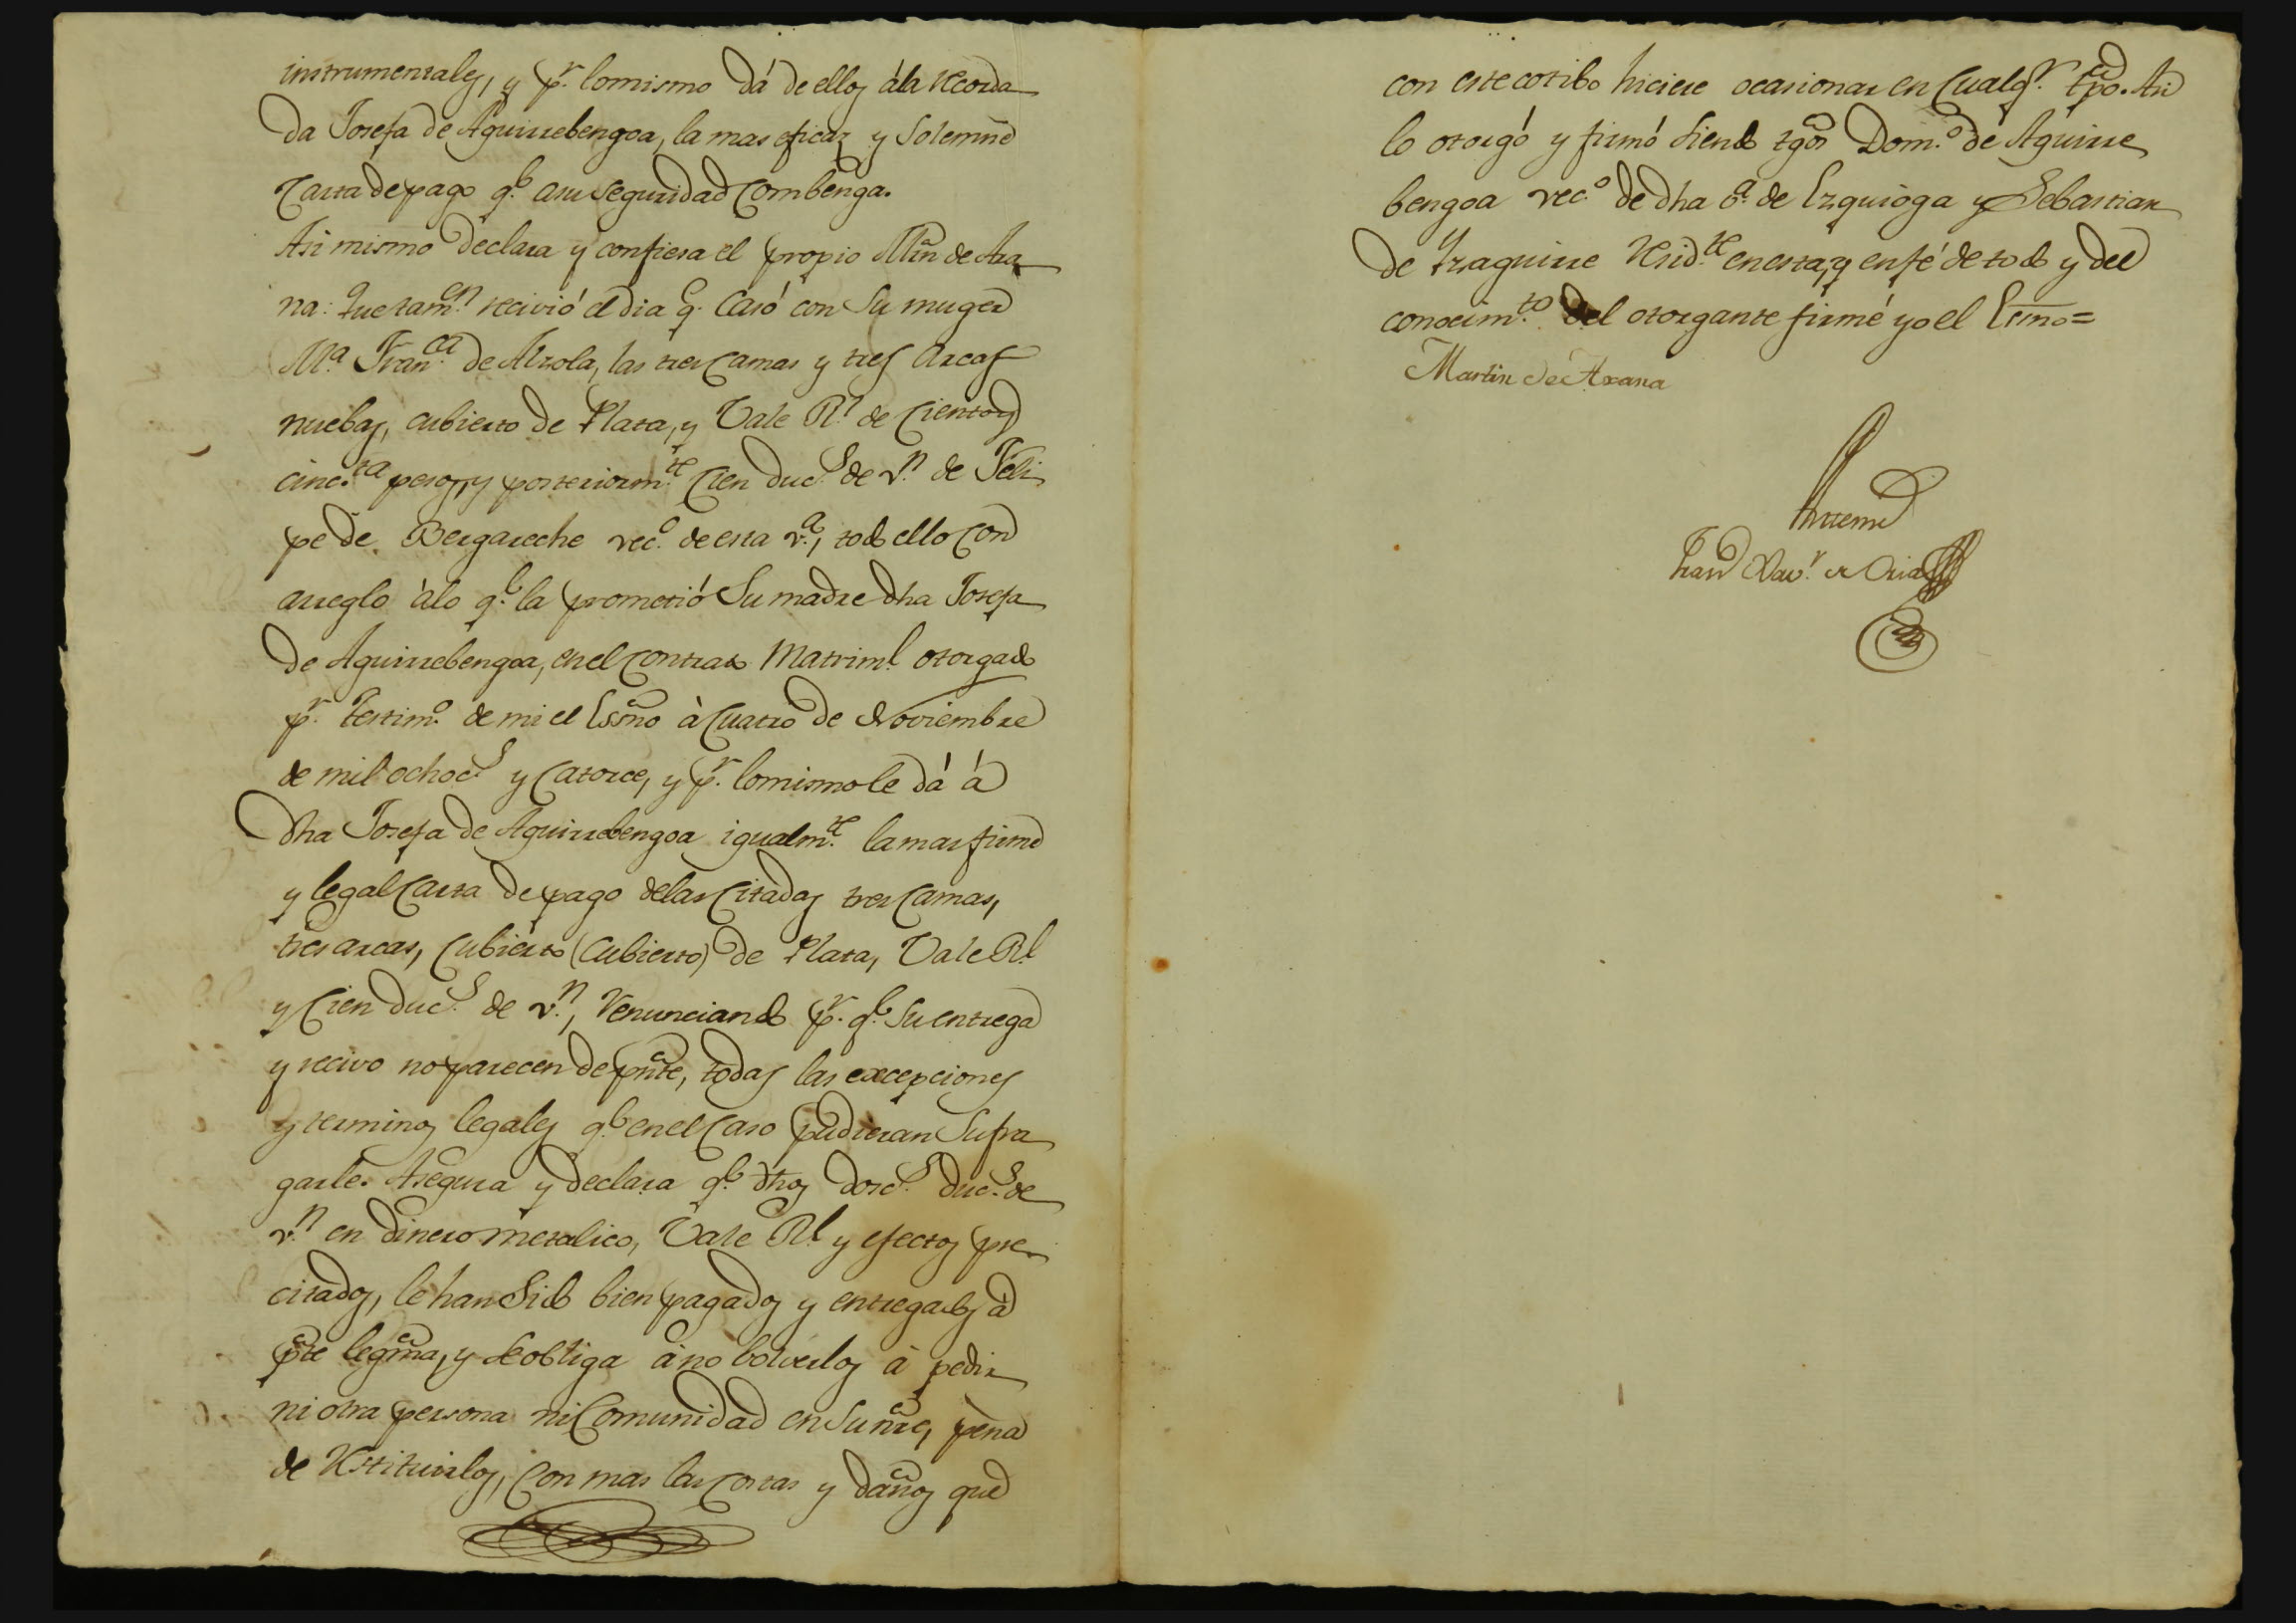 instrumentales, y pr. lo mismo dá de ellos á la recorda
da Josefa de Aguirrebengoa, la mas eficaz y solemne
Carta de pago qe. a su seguridad combenga.
Asi mismo declara y confiesa el propio Mrn de Ara
na: Que tamen. recivió el dia q. casó con su muger
Ma. Franca. de Alzola, las tres camas y tres arcas
nuebas, cubierto de Plata, y Vale Rl. de ciento y
cincta. pesos, y posteriormte. cien ducs. de vn. de Feli
pe de Bergareche veco. de esta va., todo ello con
arreglo á lo qe. la prometió su madre dha Josefa
de Aguirrebengoa, en el contrato Matriml. otorgado
pr. testimo. de mi el Essno à cuatro de Noviembre
de mil ochocs. y catorce, y pr. lo mismo le dá á
dha Josefa de Aguirrebengoa igualmte. la mas firme
y legal carta de pago de las citadas tres camas,
tres arcas, cubierto (cubierto) de Plata, Vale Rl.
y cien ducs. de vn., renunciando pr. qe. su entrega
y recivo no parecen de pnte, todas las excepciones
y terminos legales qe. en el caso pudieran sufra
garle. Asegura y declara qe. dhos dosc.s ducs. de
vn. en dinero metalico, Vale Rl. y efectos pre
citados, le han sido bien pagados y entregados á
pte legma, y se obliga á no bolverlos á pedir
ni otra persona ni comunidad en su nre, pena
de restituirlos, con mas las costas y daños que
con este cotibo hiciere ocasionar en cualqr. tpo. Asi
lo otorgó y firmó siendo tgos Domo. de Aguirre
bengoa veco. de dha va. de Ezquioga y Sebastian
de Yzaguirre residte. en esta, y en fé de todo y del
conocimto. del otorgante firmé yo el Esno=
Martin de Arana
Antemi
Frano Xavr. de Oria